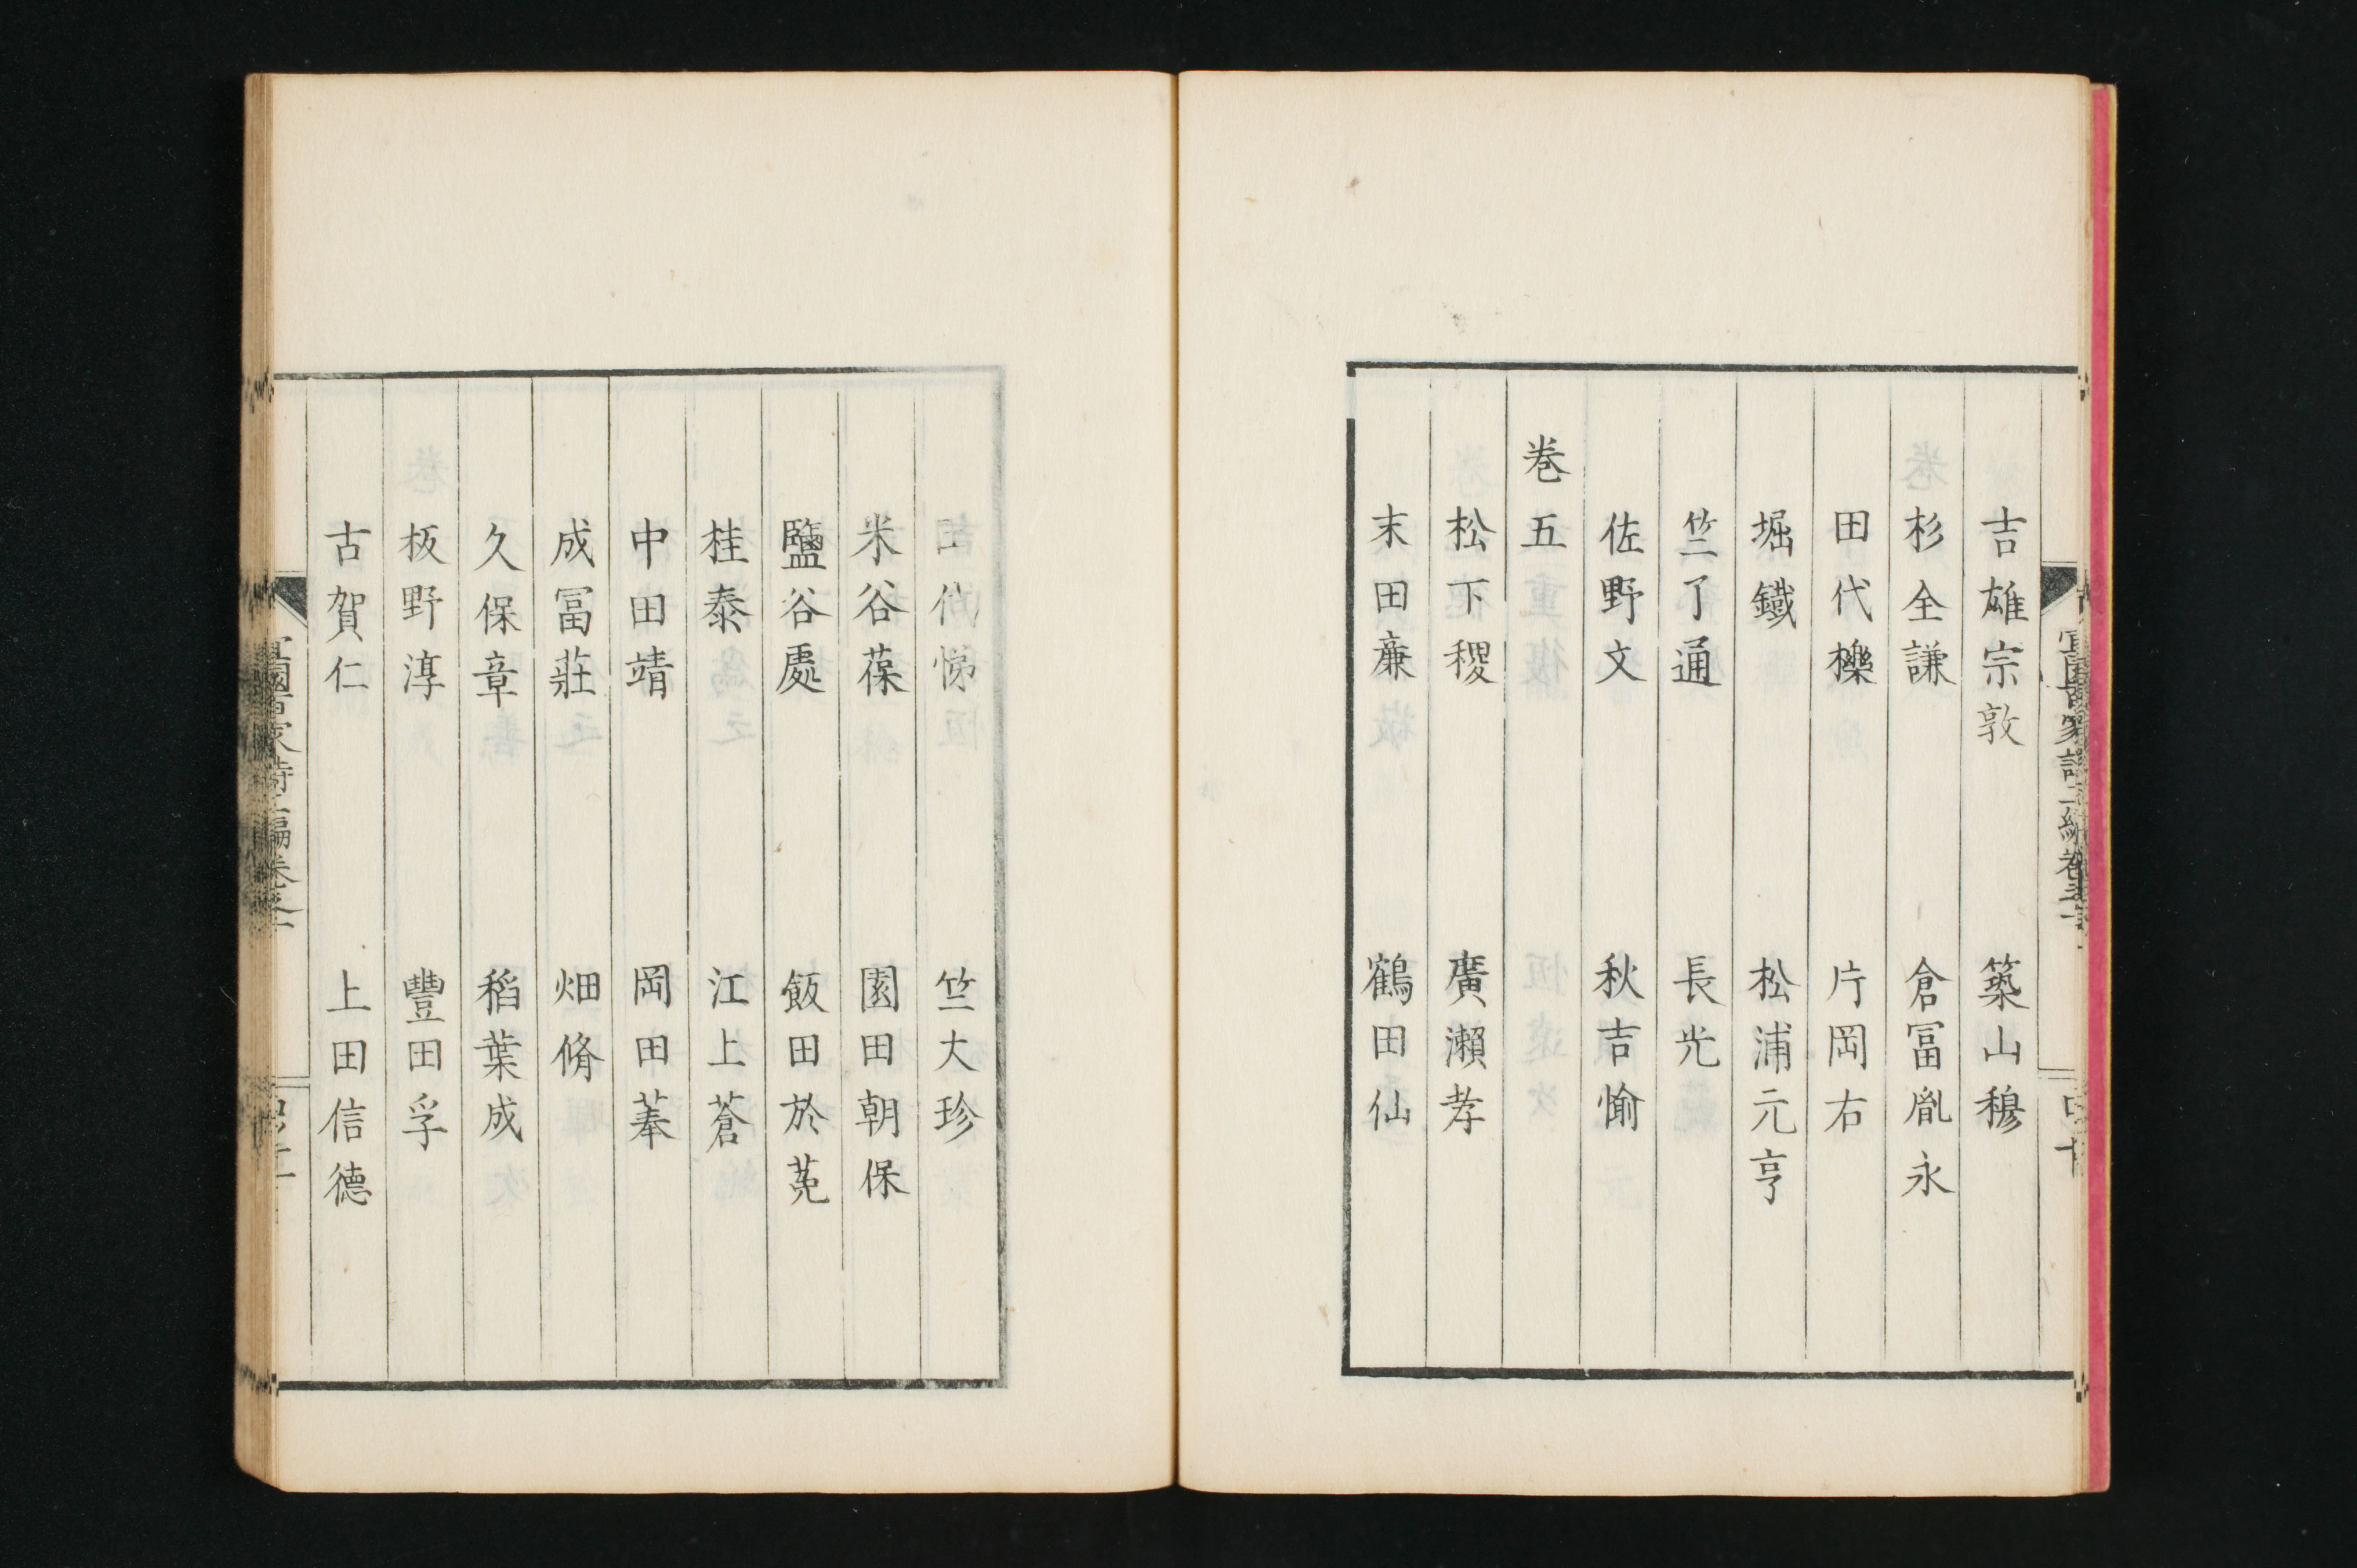 吉雄宗敦　築山穆
杉全謙　倉冨胤永
田代櫟　片岡右
堀鐵　松浦元亨
竺了通　長光
佐野文　秋吉愉
巻五
松下稷　廣瀨孝
末田亷　鶴田仙
田代悌　竺大珍
米谷葆　園田朝保
鹽谷處　飯田於菟
桂泰　江上蒼
中田靖　岡田菶
成冨莊　畑脩
久保章　稻葉成
板野淳　豐田孚
古賀仁　上田信德